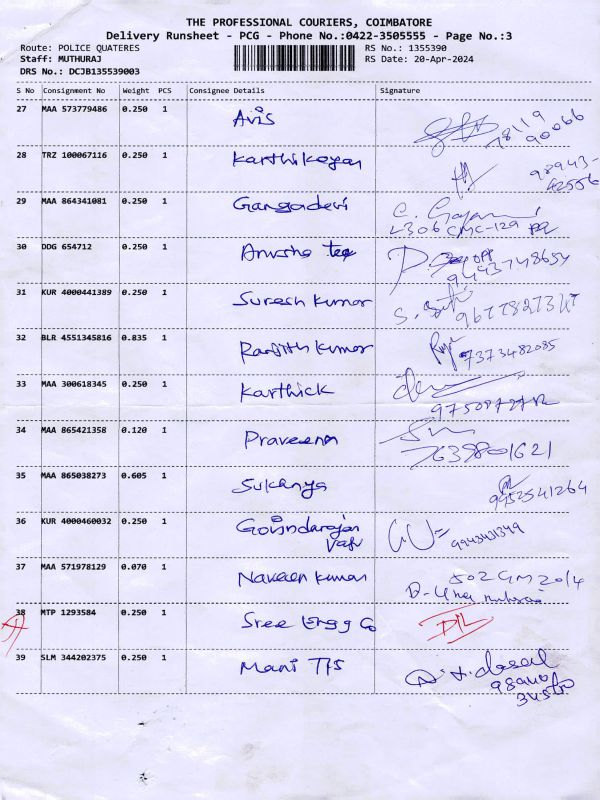 THE PROFESSIONAL COURIERS, COIMBATORE
Delivery Runsheet - PCG - Phone No.:0422-3505555 - Page No.:3
Route: POLICE QUATERES RS No.: 1355390
Staff: MUTHURAJ RS Date: 20-Apr-2024
DRS No.: DCJB135539003
S No Consignment No Weight PCS Consignee Details Signature
27 MAA 573779486 0.250 1 Avis 78119
90066
28 TRZ 100067116 0.250 1 Karthikeyan 98943-
42556
29 MAA 864341081 0.250 1 Gangadevi C.
L306 CMC-129
30 DDG 654712 0.250 1 Anusha tex
9443748654
31 KUR 4000441389 0.250 1 Suresh Kumar S.
32 BLR 4551345816 0.835 1 Ranjith Kumar 7373482085
33 MAA 300618345 0.250 1 Karthick
34 MAA 865421358 0.120 1 Praveena
7639801621
35 MAA 865038273 0.605 1 Sukanya
9952541264
36 KUR 4000460032 0.250 1 Govindarajan 9943431349
37 MAA 571978129 0.070 1 Naveen Kumar
38 MTP 1293584 0.250 1 Sree Engg Co D/L
39 SLM 344202375 0.250 1 Mani T/S